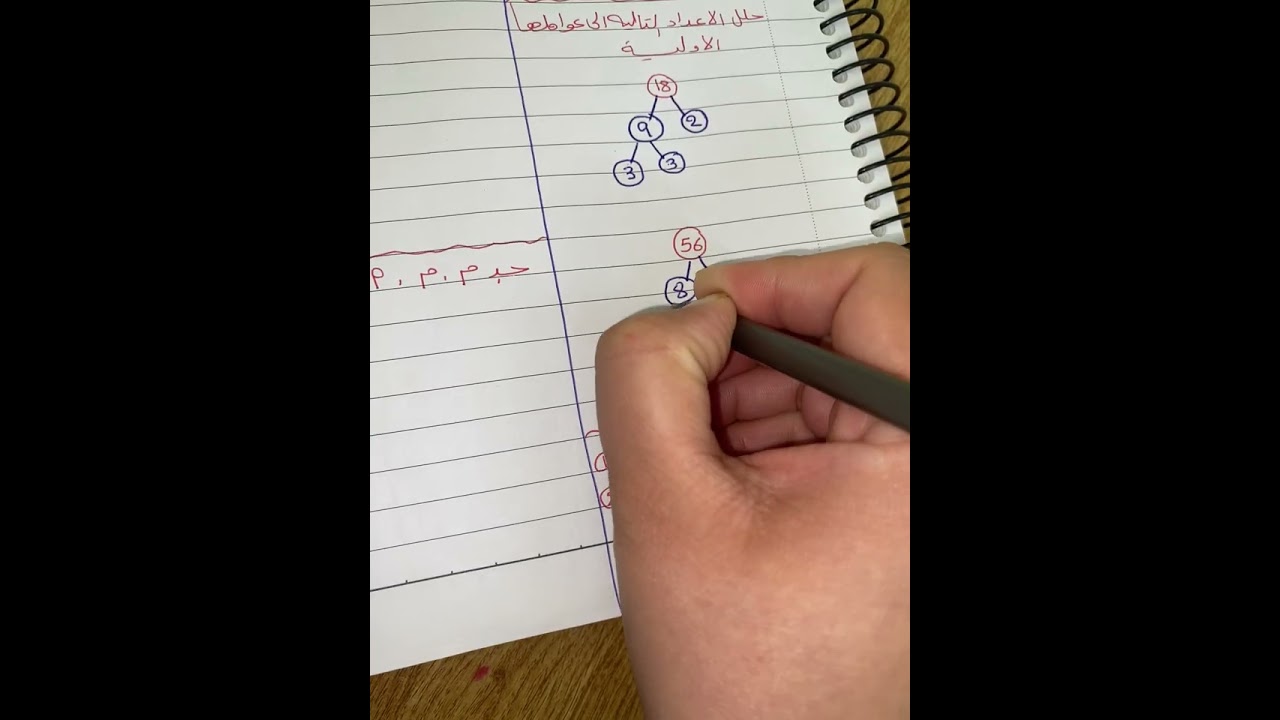 حلل الاعداد التالية الى عواملها
الاولية
18
9 2
3 3
56
8
جد م . م . م